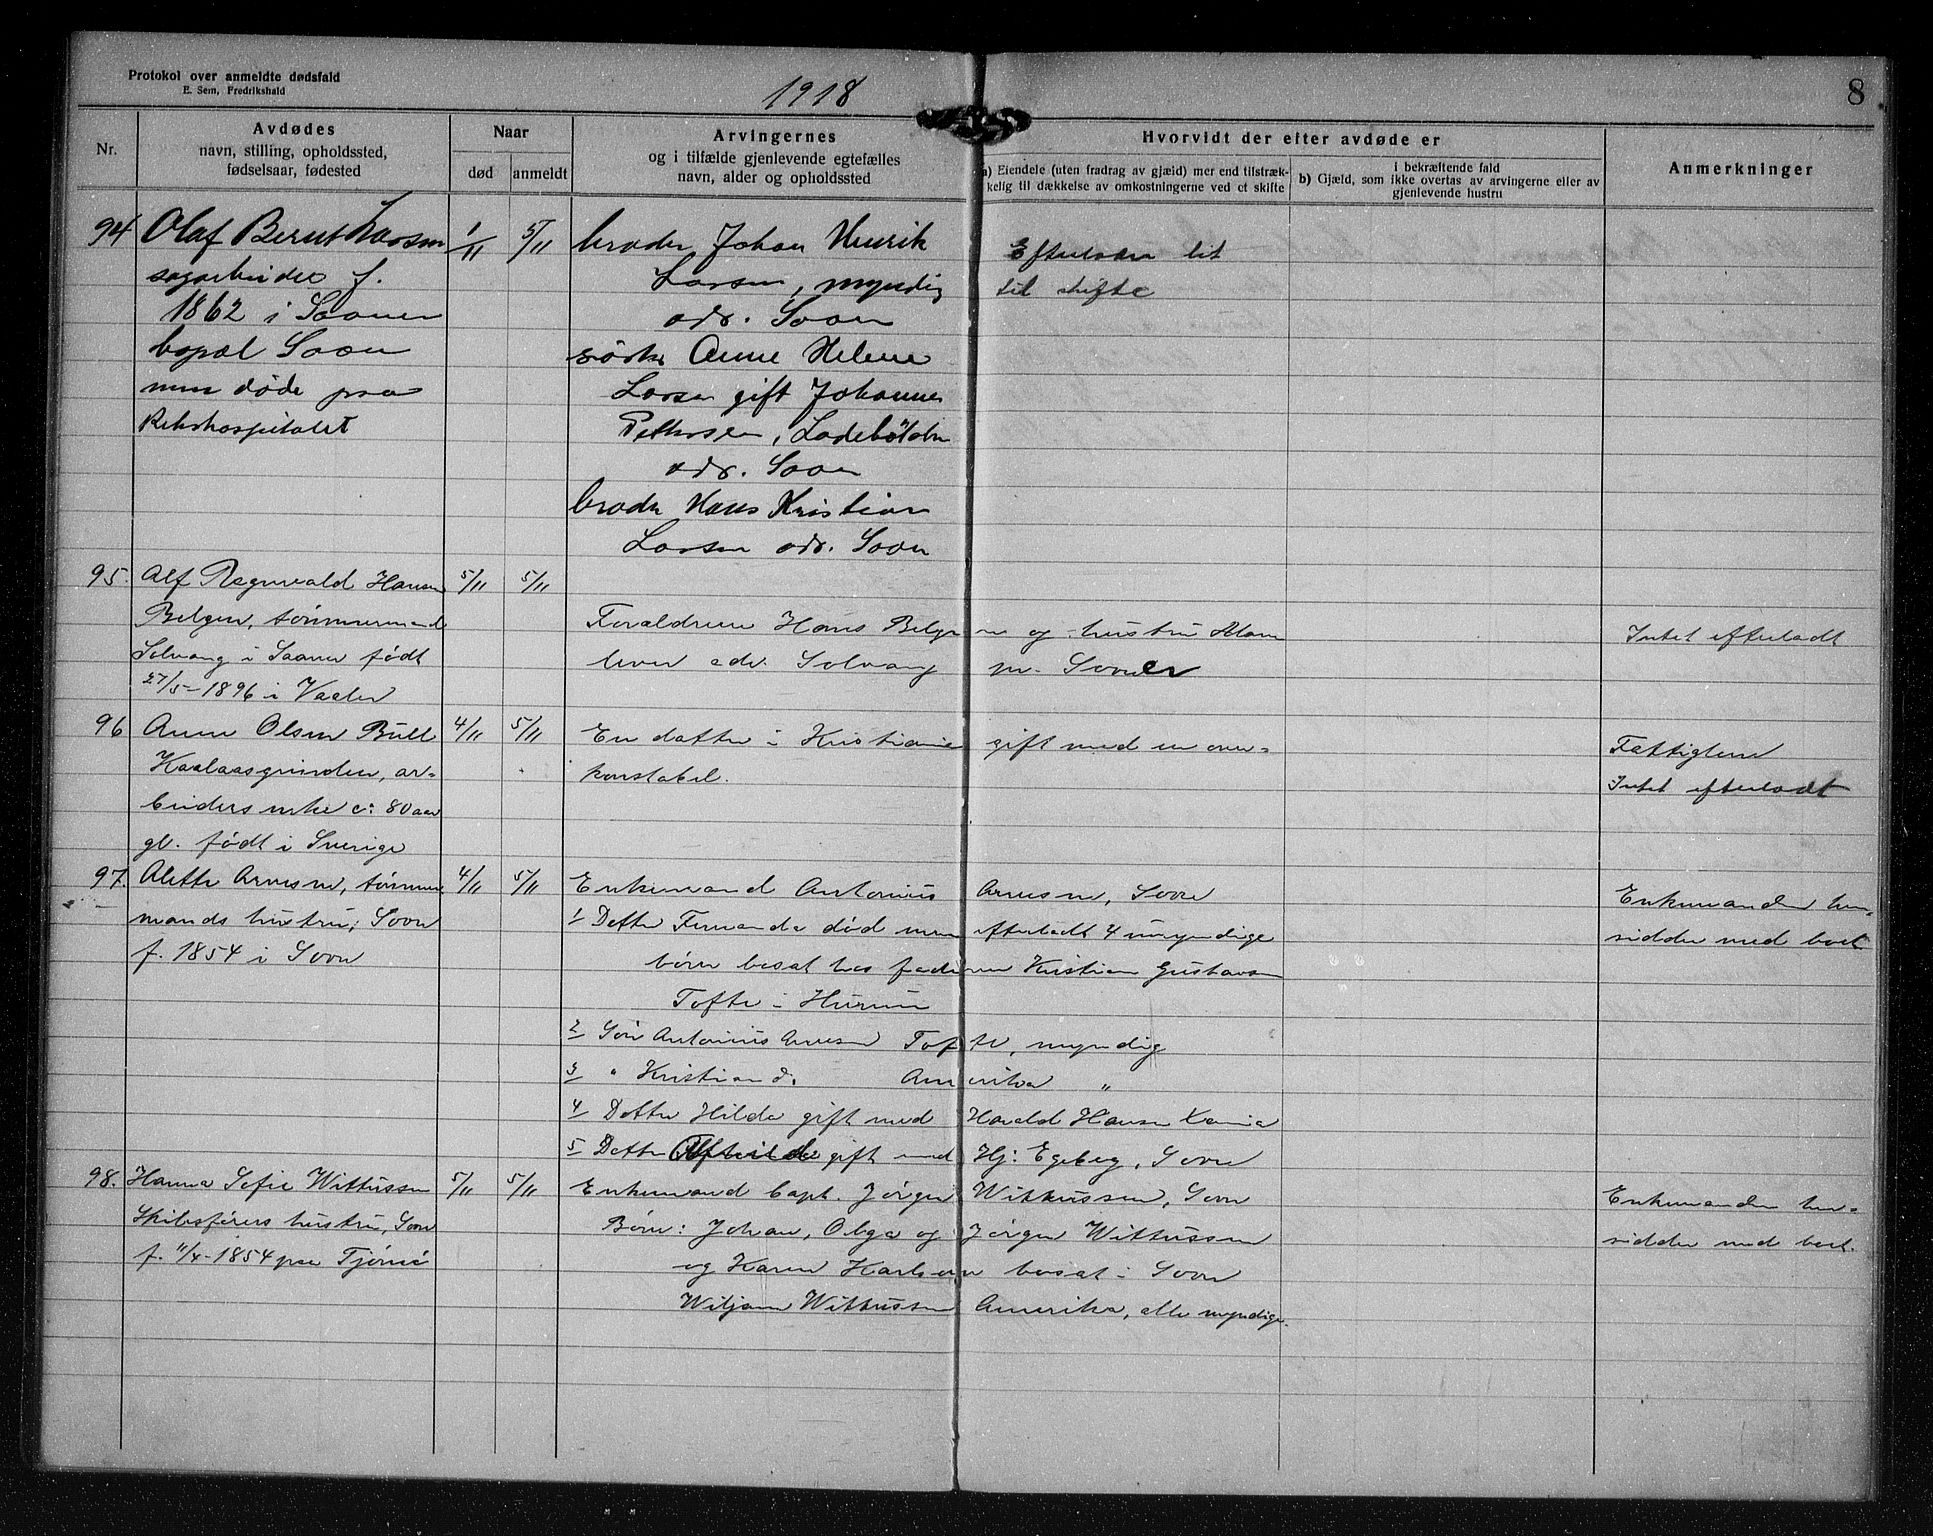 Protokol over anmeldte dødsfald
E. Sem, Fredrikshald
1918
8
Nr.
Avdødes
navn, stilling, opholdssted,
fødselsaar, fødested
Naar
død
anmeldt
Arvingernes
og i tilfælde gjenlevende egtefælles
navn, alder og opholdssted
Hvorvidt der efter avdøde er
a) Eiendele (uten fradrag av gjæld) mer end tilstræk-
kelig til dækkelse av omkostningerne ved et skifte
i bekræftende fald
b) Gjæld, som ikke overtas av arvingerne eller av
gjenlevende hustru
Anmerkninger
94
Olaf Bernt Larsen
sagarbeider f.
1862 i Saaner
bopæl Soon
men døde paa
Rikshospitalet
1/11
5/11
broder Johan Henrik
Larsen, myndig
adr. Soon
søster Anne Helene
Larsen gift Johannes
Pettersen,
adr. Soon
broder Hans Kristian
Larsen adr. Soon
Efterlader lit
til skifte
95.
Alf Ragnvald Hansen
Belgen, tømmermand
Solvang i Saaner født
27/5-1896 i Vaaler
5/11
5/11
Forældrene Hans Belgen og hustru
lever adr. Solvang pr. Sooner
Intet efterladt
96
Anne Olsen Bull
Kaalaasgrinden, ar-
beiderenke ca: 80 aar
gl. født i Sverige
4/11
5/11
En datter i Kristiania gift med en over-
konstabel.
Fattiglem
Intet efterladt
97.
Alette Arnesen, tømmer
mands hustru, Soon
f. 1854 i Soon
4/11
5/11
Enkemand Antonius Arnesen, Soon
1 Datter Fernanda død men efterladt 4 umyndige
børn bosat hos faderen Kristian Gustavsen
Tofte i Hurum
2 Søn Antonius Arnesen Tofte, myndig
3 " Kristian d. Amerika "
4 Datter Hilda gift med Harald Hansen Kania
5 Datter gift med Hj. Egeberg, Soon
Enkemanden hen-
sidder med boet
98.
Hanna Sofie Wittussen
Skibsførers hustru, Soon
f. 11/4-1854 paa Tjømø
5/11
5/11
Enkemand Capt. Jørgen Wittussen, Soon
Børn: Johan, Olga og Jørgen Wittussen
og Karen Karlsen bosat i Soon
Wiljam Wittussen Amerika, alle myndige.
Enkemanden hen-
sidder med boet.